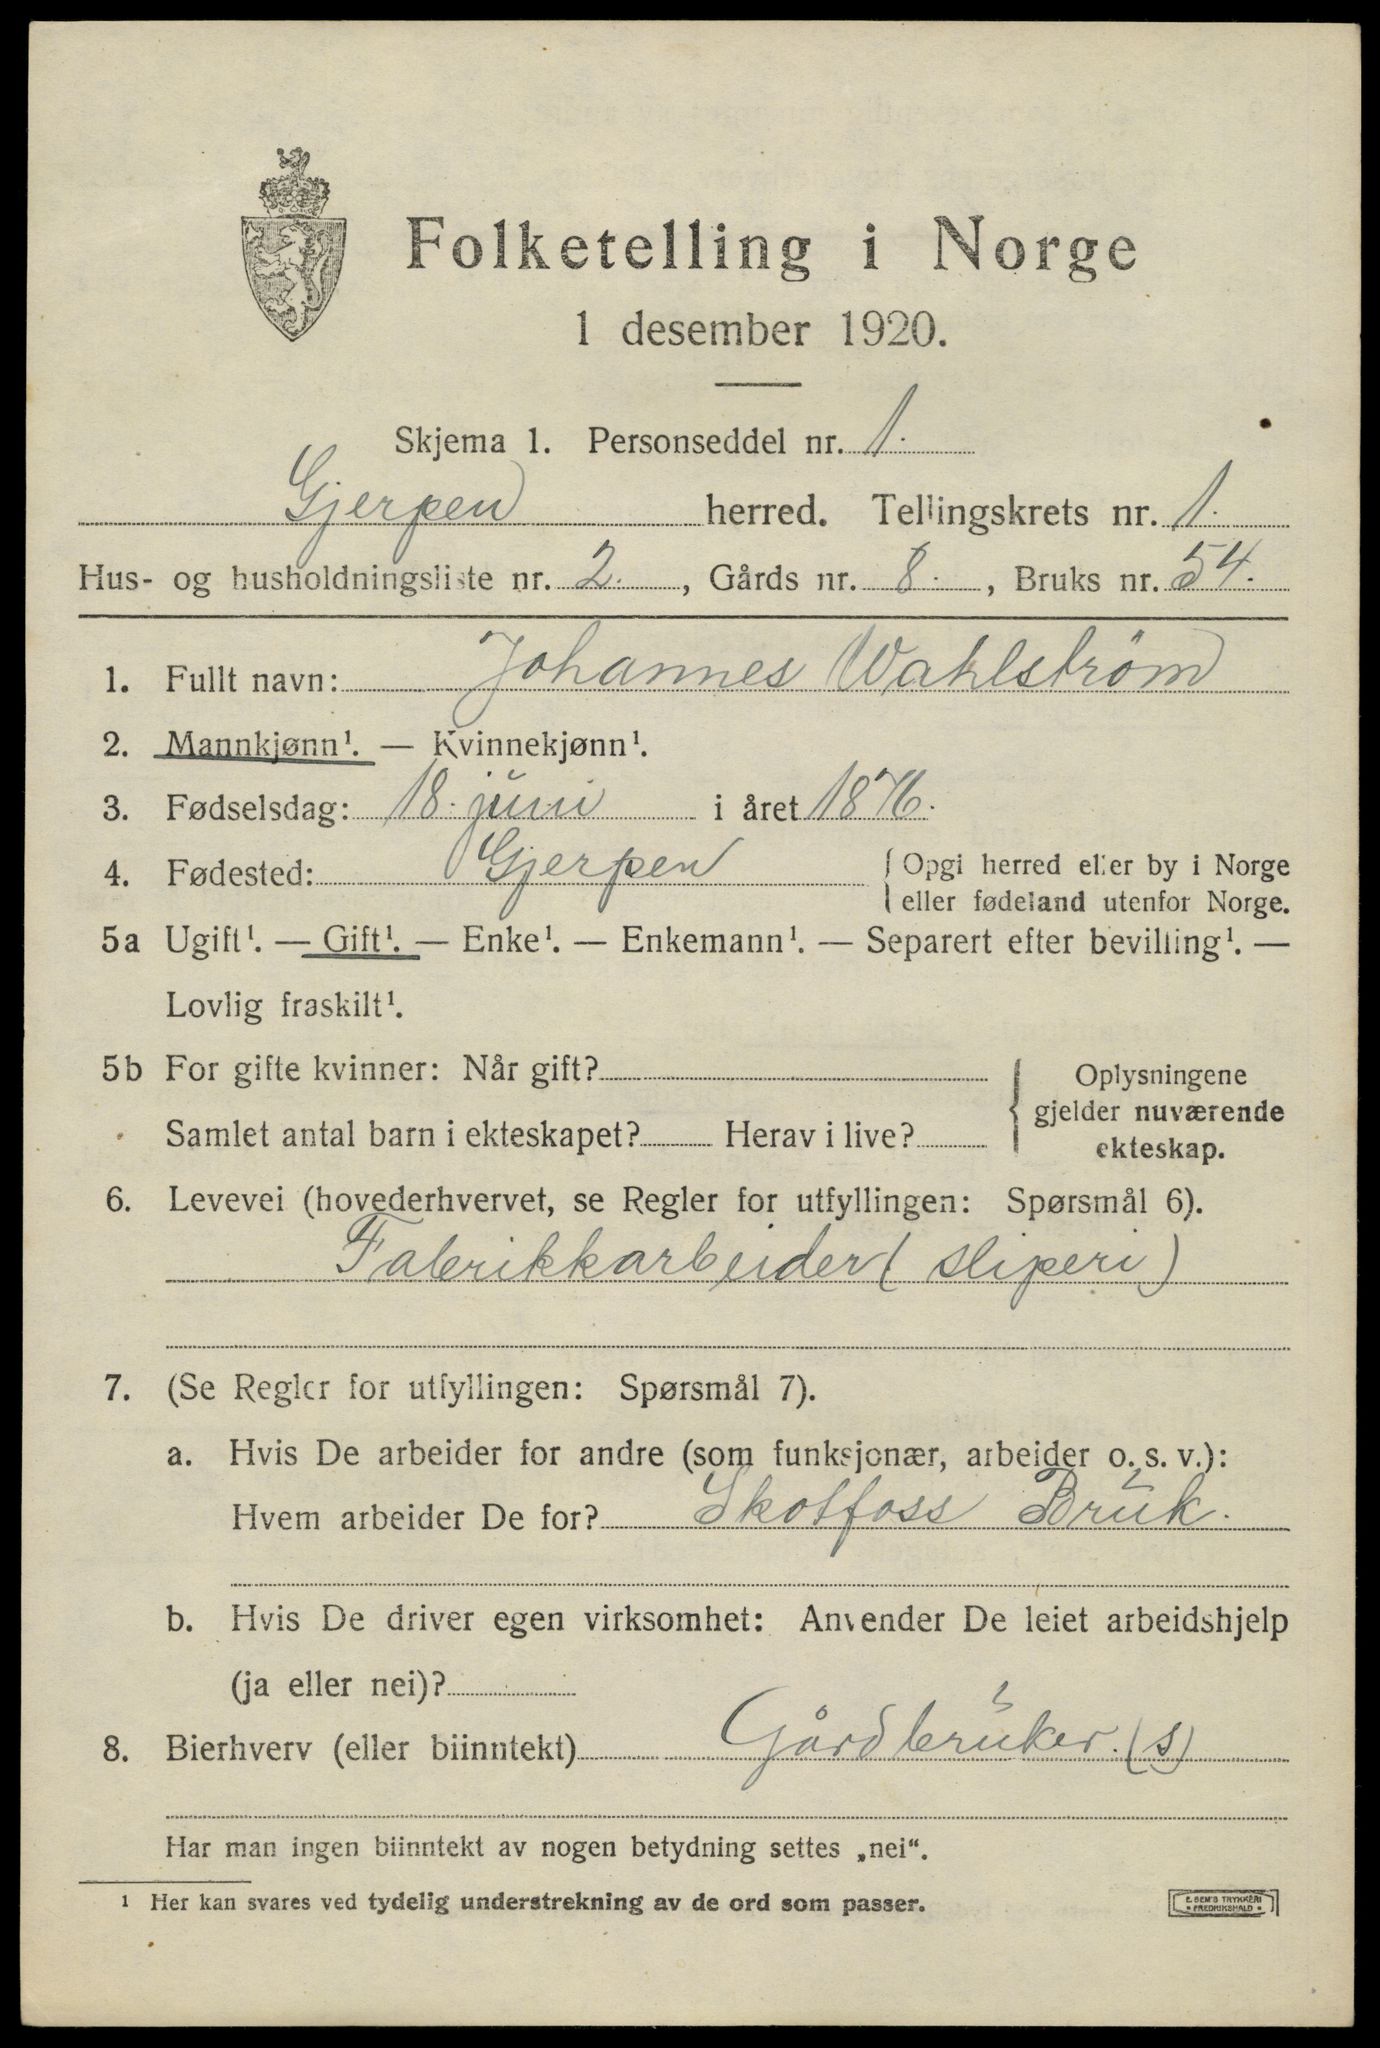 Folketelling i Norge
1 desember 1920.
Skjema 1. Personseddel nr. 1.
Gjerpen herred. Tellingskrets nr. 1.
Hus- og husholdningsliste nr. 2., Gårds nr. 8., Bruks nr. 54.
1. Fullt navn: Johannes Wahlström
2. Mannkjønn¹. — Kvinnekjønn¹.
3. Fødselsdag: 18. juni i året 1876.
4. Fødested: Gjerpen { Opgi herred eller by i Norge
eller fødeland utenfor Norge.
5a Ugift¹. — Gift¹. — Enke¹. — Enkemann¹. — Separert efter bevilling¹. —
Lovlig fraskilt¹.
5b For gifte kvinner: Når gift?
Samlet antal barn i ekteskapet? Herav i live?
{ Oplysningene
gjelder nuværende
ekteskap.
6. Levevei (hovederhvervet, se Regler for utfyllingen: Spørsmål 6).
Fabrikkarbeider (sliperi)
7. (Se Regler for utfyllingen: Spørsmål 7).
a. Hvis De arbeider for andre (som funksjonær, arbeider o. s. v.):
Hvem arbeider De for? Skotfoss Bruk.
b. Hvis De driver egen virksomhet: Anvender De leiet arbeidshjelp
(ja eller nei)?
8. Bierhverv (eller biinntekt) Gårdbruker. (s)
Har man ingen biinntekt av nogen betydning settes „nei“.
¹ Her kan svares ved tydelig understrekning av de ord som passer.
E. SEM'S TRYKKERI
• FREDRIKSHALD •